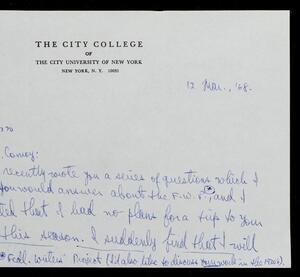 THE CITY COLLEGE
OF
THE CITY UNIVERSITY OF NEW YORK
NEW YORK, N. Y. 10031
12 Mar., '68.
Conroy:
recently wrote you a series of questions which I
you would answer about the F.W.P.,* and I
ted that I had no plans for a trip to your
this season. I suddenly find that I will
* Fedl. Writers' Project (I'd also like to discuss your work in the 1930s).